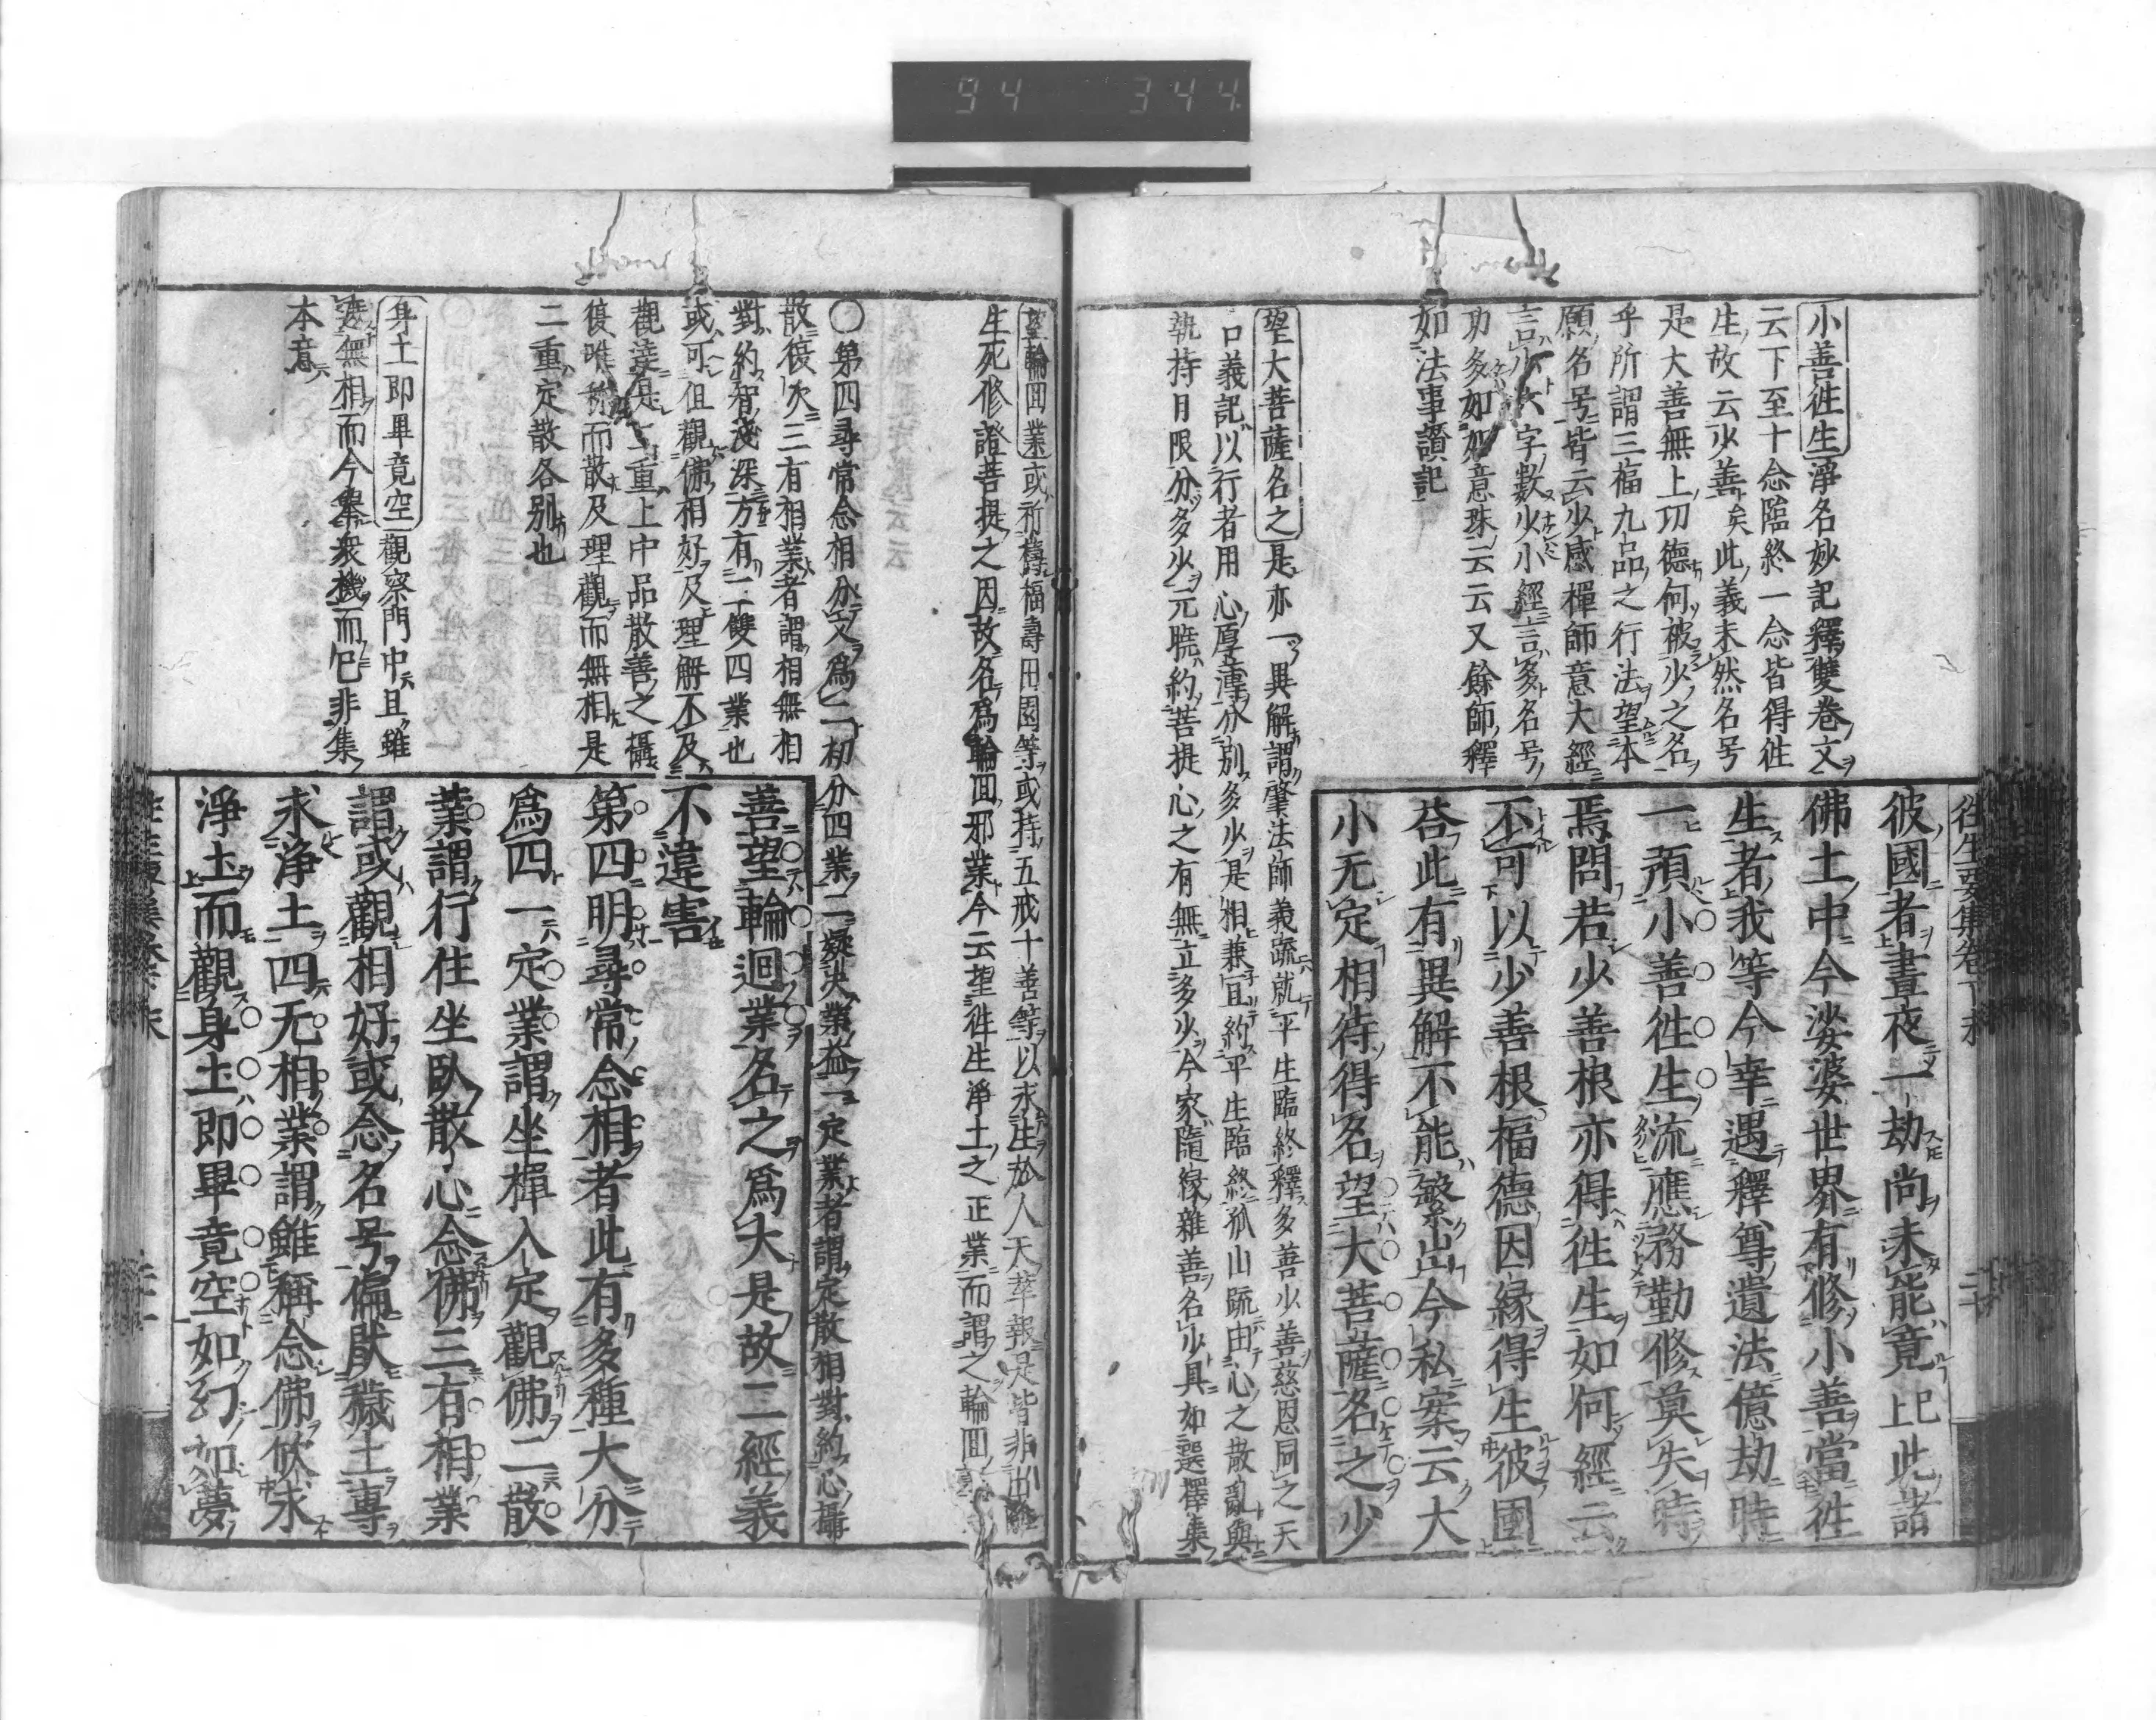 94 344
往生要集卷下末
小善徃生 淨名妙記釋雙卷文
云下至十念臨終一念皆得徃
生故云少善矣此義未然名号
是大善無上功德何被少之名
乎所謂三福九品之行法望本
願名号皆云少感禪師意大經
言少六字數少小經言多名号
功多如如意珠云云又餘師釋
如法事讚記
望大菩薩名之 是亦一異解謂肇法師義䟽就平生臨終釋多善少善慈恩同之天
口義記以行者用心厚薄分別多少是相兼宜約平生臨終孤山䟽由心之散亂與
執持月限分多少元曉約菩提心之有無立多少今家隨緣雜善名少具如選擇集
彼國者晝夜一劫尚未能竟已上此諸
佛土中今娑婆世界有修小善當徃
生者我等今幸遇釋尊遺法億劫時
一預小善徃生流應務勤修莫失時
焉問若少善根亦得徃生如何經云
不可以少善根福德因緣得生彼國
荅此有異解不能繁出今私案云大
小无定相待得名望大菩薩名之少
望輪回業 或祈禱福壽田園等或持五戒十善等以求生於人天華報是皆非出離
生死修證菩提之因故名爲輪回邪業今云望徃生淨土之正業而謂之輪回
〇第四尋常念相分文爲二初分四業二擬決業益一定業者謂定散相對約心攝
散後次三有相業者謂相無相
對約智淺深方有二雙四業也
或可但觀佛相好及理解不及
觀達是二重上中品散善之攝
復唯稱而散及理觀而無相是
二重定散各別也
身土即畢竟空 觀察門中且雖
遮無相而今舉衆機而已非集
本意
善望輪迴業名之爲大是故二經義
不違害
第四明尋常念相者此有多種大分
爲四一定業謂坐禪入定觀佛二散
業謂行住坐臥散心念佛三有相業
謂或觀相好或念名号偏猒穢土專
求淨土四无相業謂雖稱念佛欣求
淨土而觀身土即畢竟空如幻如夢